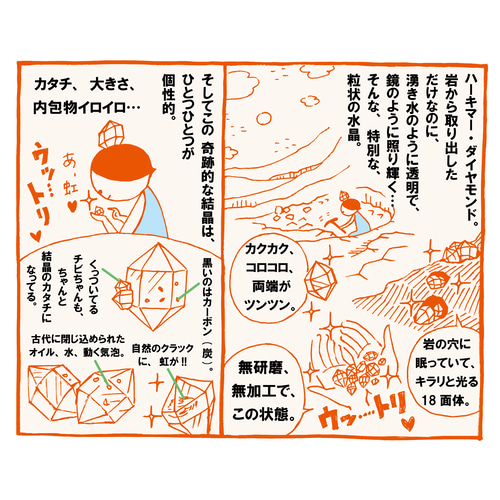 ハーキマー・ダイヤモンド。
岩から取り出した
だけなのに、
湧き水のように透明で、
鏡のように照り輝く…
そんな、特別な、
粒状の水晶。
カクカク、
コロコロ、
両端が
ツンツン。
岩の穴に
眠っていて、
キラリと光る
18面体。
無研磨、
無加工で、
この状態。
ウッ……トリ
そしてこの 奇跡的な結晶は、
ひとつひとつが
個性的。
カタチ、大きさ、
内包物イロイロ…
あ、虹
ウッ…トリ
黒いのはカーボン（炭）。
くっついてる
チビちゃんも、
ちゃんと
結晶のカタチに
なってる。
古代に閉じ込められた
オイル、水、動く気泡。
自然のクラック
に、虹が!!